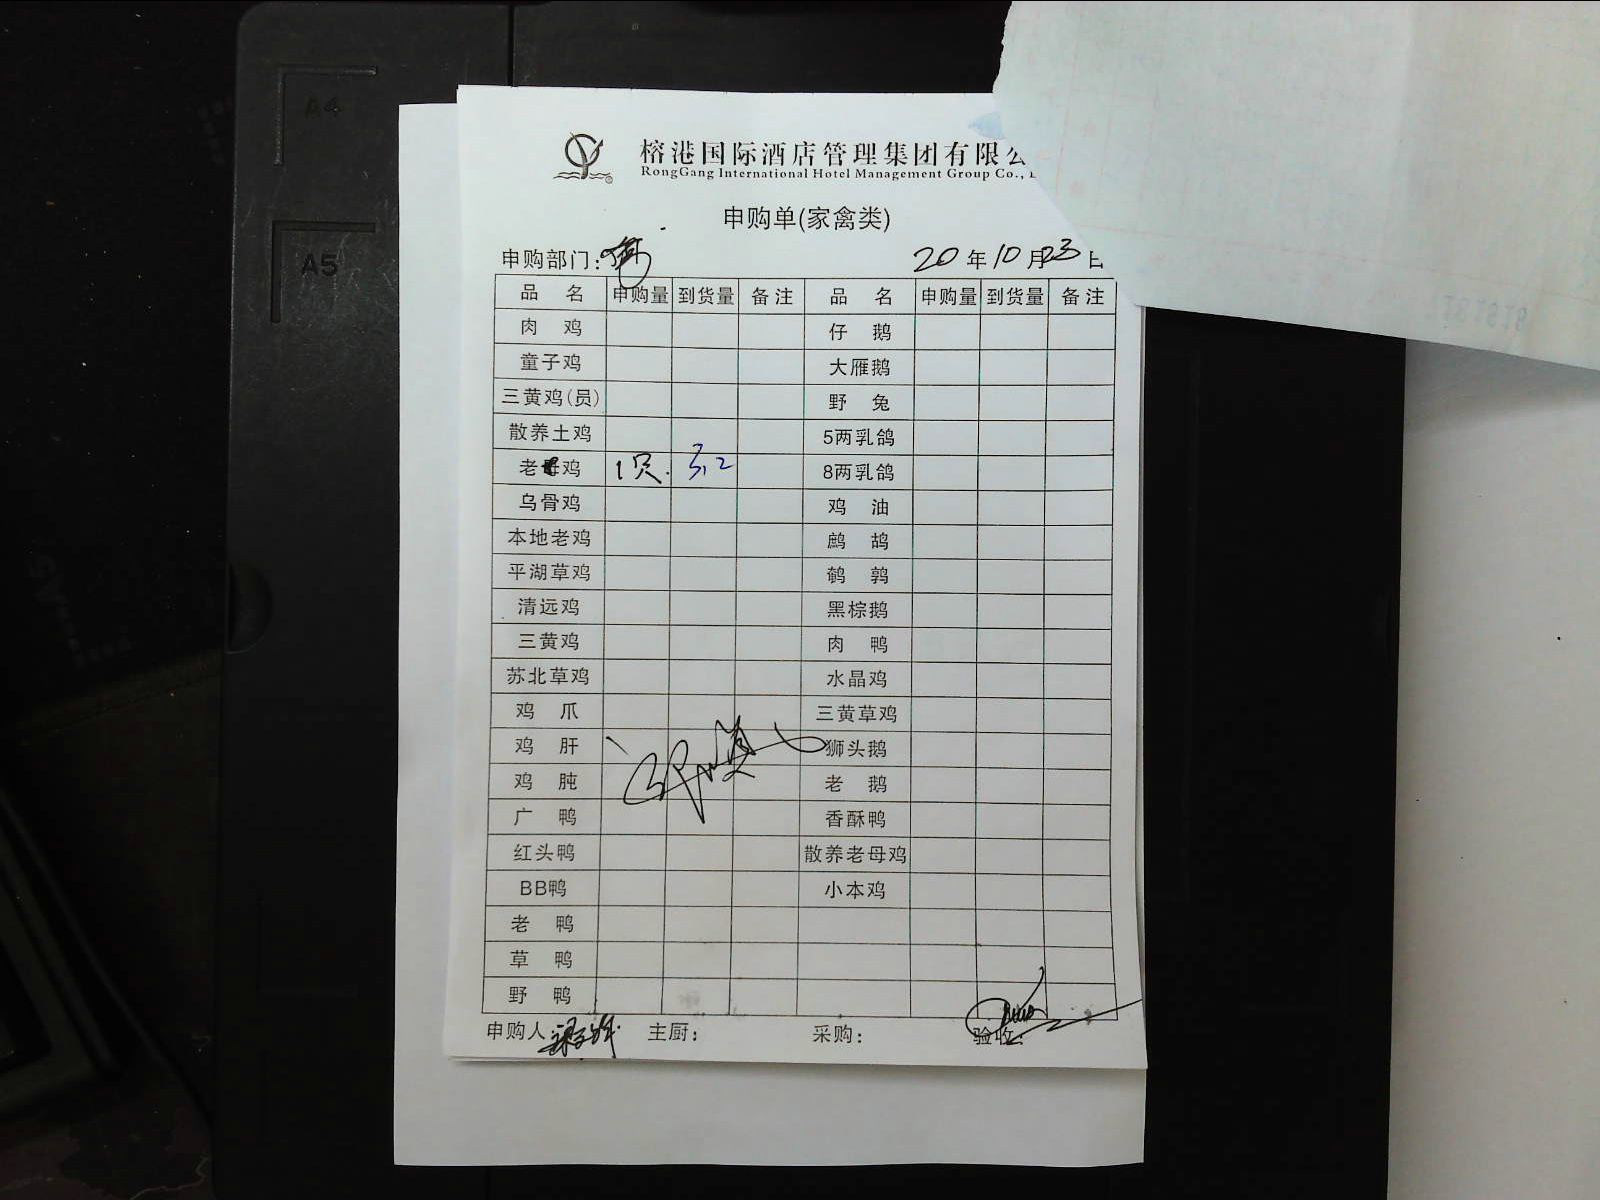 A4
A5
榕港国际酒店管理集团有限公
RongGang International Hotel Management Group Co.,
申购单(家禽类)
申购部门: 20 年 10 月 23 日
品 名 申购量 到货量 备注 品 名 申购量 到货量 备注
肉 鸡 仔 鹅
童子鸡 大雁鹅
三黄鸡(员) 野 兔
散养土鸡 5两乳鸽
老母鸡 1只. 3.2 8两乳鸽
乌骨鸡 鸡 油
本地老鸡 鹧 鸪
平湖草鸡 鹌 鹑
清远鸡 黑棕鹅
三黄鸡 肉 鸭
苏北草鸡 水晶鸡
鸡 爪 三黄草鸡
鸡 肝 狮头鹅
鸡 肫 老 鹅
广 鸭 香酥鸭
红头鸭 散养老母鸡
BB鸭 小本鸡
老 鸭
草 鸭
野 鸭
申购人 主厨: 采购: 验收: